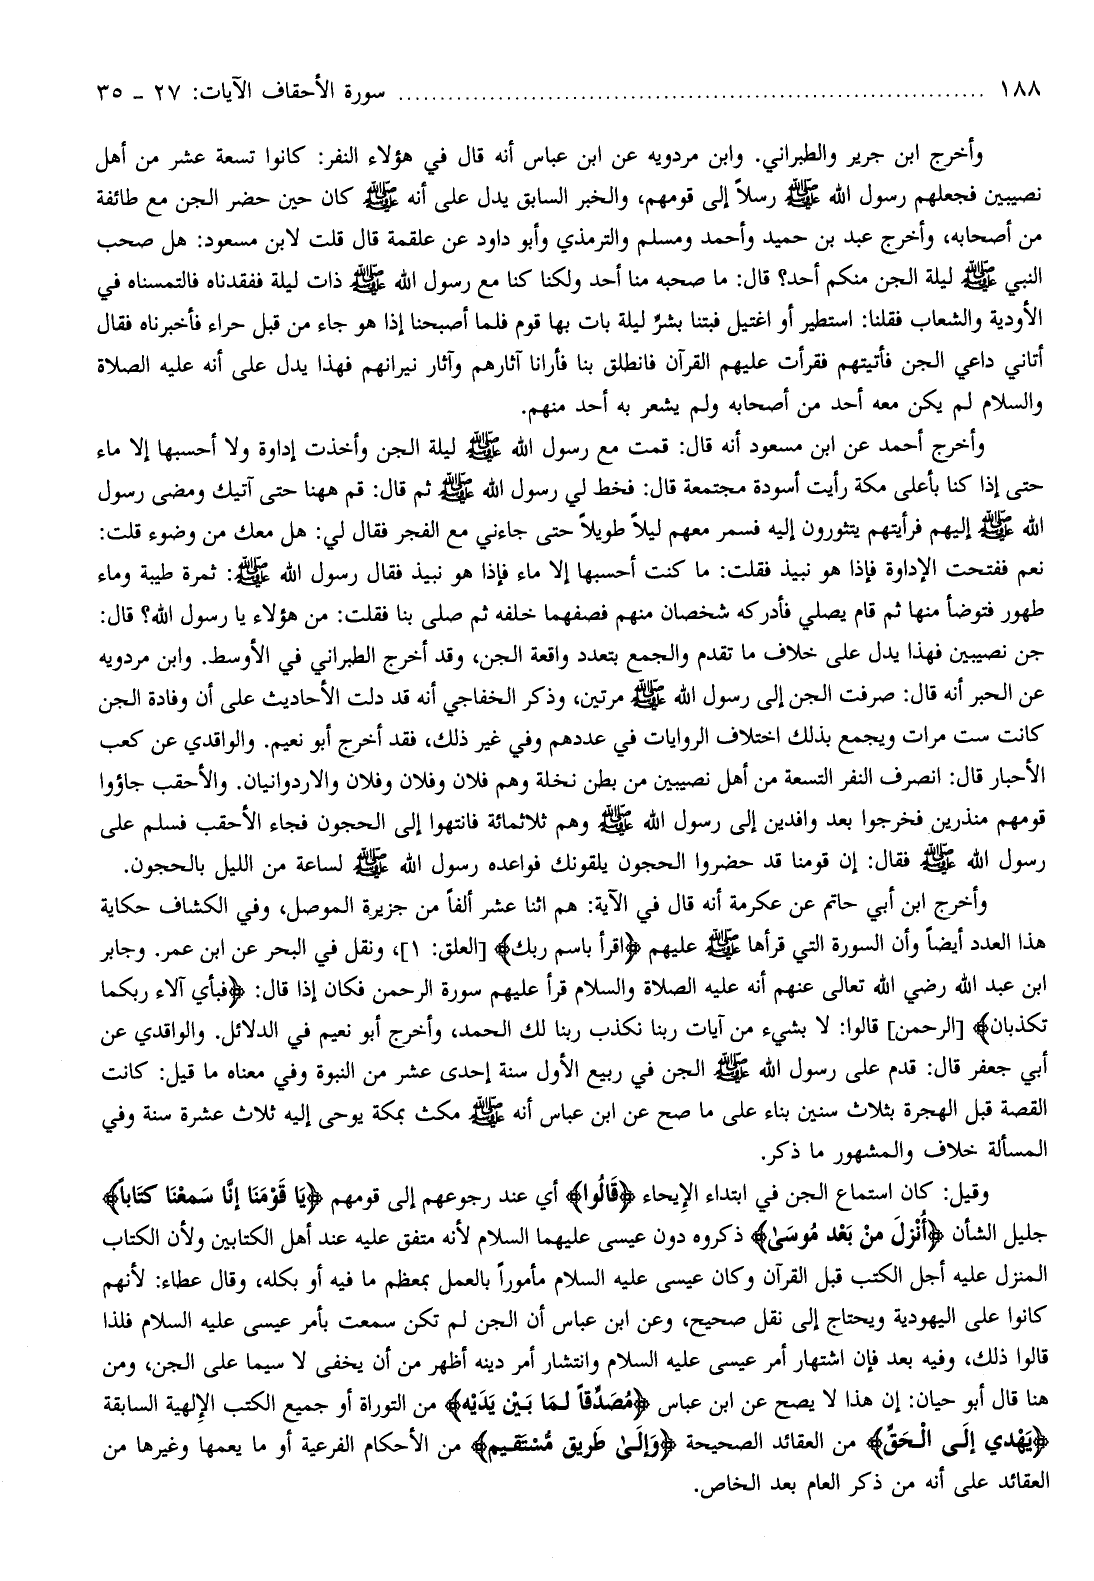 ١٨٨ ........................................ سورة الأحقاف الآيات: ٢٧ ـ ٣٥
وأخرج ابن جرير والطبراني. وابن مردويه عن ابن عباس أنه قال في هؤلاء النفر: كانوا تسعة عشر من أهل
نصيبين فجعلهم رسول الله ﷺ رسلاً إلى قومهم، والخبر السابق يدل على أنه ﷺ كان حين حضر الجن مع طائفة
من أصحابه، وأخرج عبد بن حميد وأحمد ومسلم والترمذي وأبو داود عن علقمة قال قلت لابن مسعود: هل صحب
النبي ﷺ ليلة الجن منكم أحد؟ قال: ما صحبه منا أحد ولكنا كنا مع رسول الله ﷺ ذات ليلة ففقدناه فالتمسناه في
الأودية والشعاب فقلنا: استطير أو اغتيل فبتنا بشرِّ ليلة بات بها قوم فلما أصبحنا إذا هو جاء من قبل حراء فأخبرناه فقال
أتاني داعي الجن فأتيتهم فقرأت عليهم القرآن فانطلق بنا فأرانا آثارهم وآثار نيرانهم فهذا يدل على أنه عليه الصلاة
والسلام لم يكن معه أحد من أصحابه ولم يشعر به أحد منهم.
وأخرج أحمد عن ابن مسعود أنه قال: قمت مع رسول الله ﷺ ليلة الجن وأخذت إداوة ولا أحسبها إلا ماء
حتى إذا كنا بأعلى مكة رأيت أسودة مجتمعة قال: فخط لي رسول الله ﷺ ثم قال: قم ههنا حتى آتيك ومضى رسول
الله ﷺ إليهم فرأيتهم يتثورون إليه فسمر معهم ليلاً طويلاً حتى جاءني مع الفجر فقال لي: هل معك من وضوء قلت:
نعم ففتحت الإداوة فإذا هو نبيذ فقلت: ما كنت أحسبها إلا ماء فإذا هو نبيذ فقال رسول الله ﷺ: ثمرة طيبة وماء
طهور فتوضأ منها ثم قام يصلي فأدركه شخصان منهم فصفهما خلفه ثم صلى بنا فقلت: من هؤلاء يا رسول الله؟ قال:
جن نصيبين فهذا يدل على خلاف ما تقدم والجمع بتعدد واقعة الجن، وقد أخرج الطبراني في الأوسط. وابن مردويه
عن الحبر أنه قال: صرفت الجن إلى رسول الله ﷺ مرتين، وذكر الخفاجي أنه قد دلت الأحاديث على أن وفادة الجن
كانت ست مرات ويجمع بذلك اختلاف الروايات في عددهم وفي غير ذلك، فقد أخرج أبو نعيم. والواقدي عن كعب
الأحبار قال: انصرف النفر التسعة من أهل نصيبين من بطن نخلة وهم فلان وفلان وفلان والاردوانيان. والأحقب جاؤوا
قومهم منذرين فخرجوا بعد وافدين إلى رسول الله ﷺ وهم ثلاثمائة فانتهوا إلى الحجون فجاء الأحقب فسلم على
رسول الله ﷺ فقال: إن قومنا قد حضروا الحجون يلقونك فواعده رسول الله ﷺ لساعة من الليل بالحجون.
وأخرج ابن أبي حاتم عن عكرمة أنه قال في الآية: هم اثنا عشر ألفاً من جزيرة الموصل، وفي الكشاف حكاية
هذا العدد أيضاً وأن السورة التي قرأها ﷺ عليهم ﴿اقرأ باسم ربك﴾ [العلق: ١]، ونقل في البحر عن ابن عمر. وجابر
ابن عبد الله رضي الله تعالى عنهم أنه عليه الصلاة والسلام قرأ عليهم سورة الرحمن فكان إذا قال: ﴿فبأي آلاء ربكما
تكذبان﴾ [الرحمن] قالوا: لا بشيء من آيات ربنا نكذب ربنا لك الحمد، وأخرج أبو نعيم في الدلائل. والواقدي عن
أبي جعفر قال: قدم على رسول الله ﷺ الجن في ربيع الأول سنة إحدى عشر من النبوة وفي معناه ما قيل: كانت
القصة قبل الهجرة بثلاث سنين بناء على ما صح عن ابن عباس أنه ﷺ مكث بمكة يوحى إليه ثلاث عشرة سنة وفي
المسألة خلاف والمشهور ما ذكر.
وقيل: كان استماع الجن في ابتداء الإيحاء ﴿قَالُوا﴾ أي عند رجوعهم إلى قومهم ﴿يَا قَوْمَنَا إنَّا سَمعْنَا كتَاباً﴾
جليل الشأن ﴿أُنْزلَ منْ بَعْد مُوسَىٰ﴾ ذكروه دون عيسى عليهما السلام لأنه متفق عليه عند أهل الكتابين ولأن الكتاب
المنزل عليه أجل الكتب قبل القرآن وكان عيسى عليه السلام مأموراً بالعمل بمعظم ما فيه أو بكله، وقال عطاء: لأنهم
كانوا على اليهودية ويحتاج إلى نقل صحيح، وعن ابن عباس أن الجن لم تكن سمعت بأمر عيسى عليه السلام فلذا
قالوا ذلك، وفيه بعد فإن اشتهار أمر عيسى عليه السلام وانتشار أمر دينه أظهر من أن يخفى لا سيما على الجن، ومن
هنا قال أبو حيان: إن هذا لا يصح عن ابن عباس ﴿مُصَدِّقاً لمَا بَيْن يَدَيْه﴾ من التوراة أو جميع الكتب الإلهية السابقة
﴿يَهْدي إلَى الْحَقِّ﴾ من العقائد الصحيحة ﴿وَإلَىٰ طَريق مُّسْتَقيم﴾ من الأحكام الفرعية أو ما يعمها وغيرها من
العقائد على أنه من ذكر العام بعد الخاص.